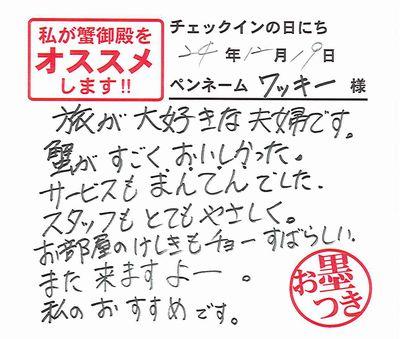 私が蟹御殿を
オススメ
します!!
チェックインの日にち
24年12月19日
ペンネーム ワッキー 様
旅が大好きな夫婦です。
蟹がすごくおいしかった。
サービスもまんてんでした.
スタッフもとてもやさしく。
お部屋のけしきもチョーすばらしい.
また来ますよー。
私のおすすめです。
お墨つき